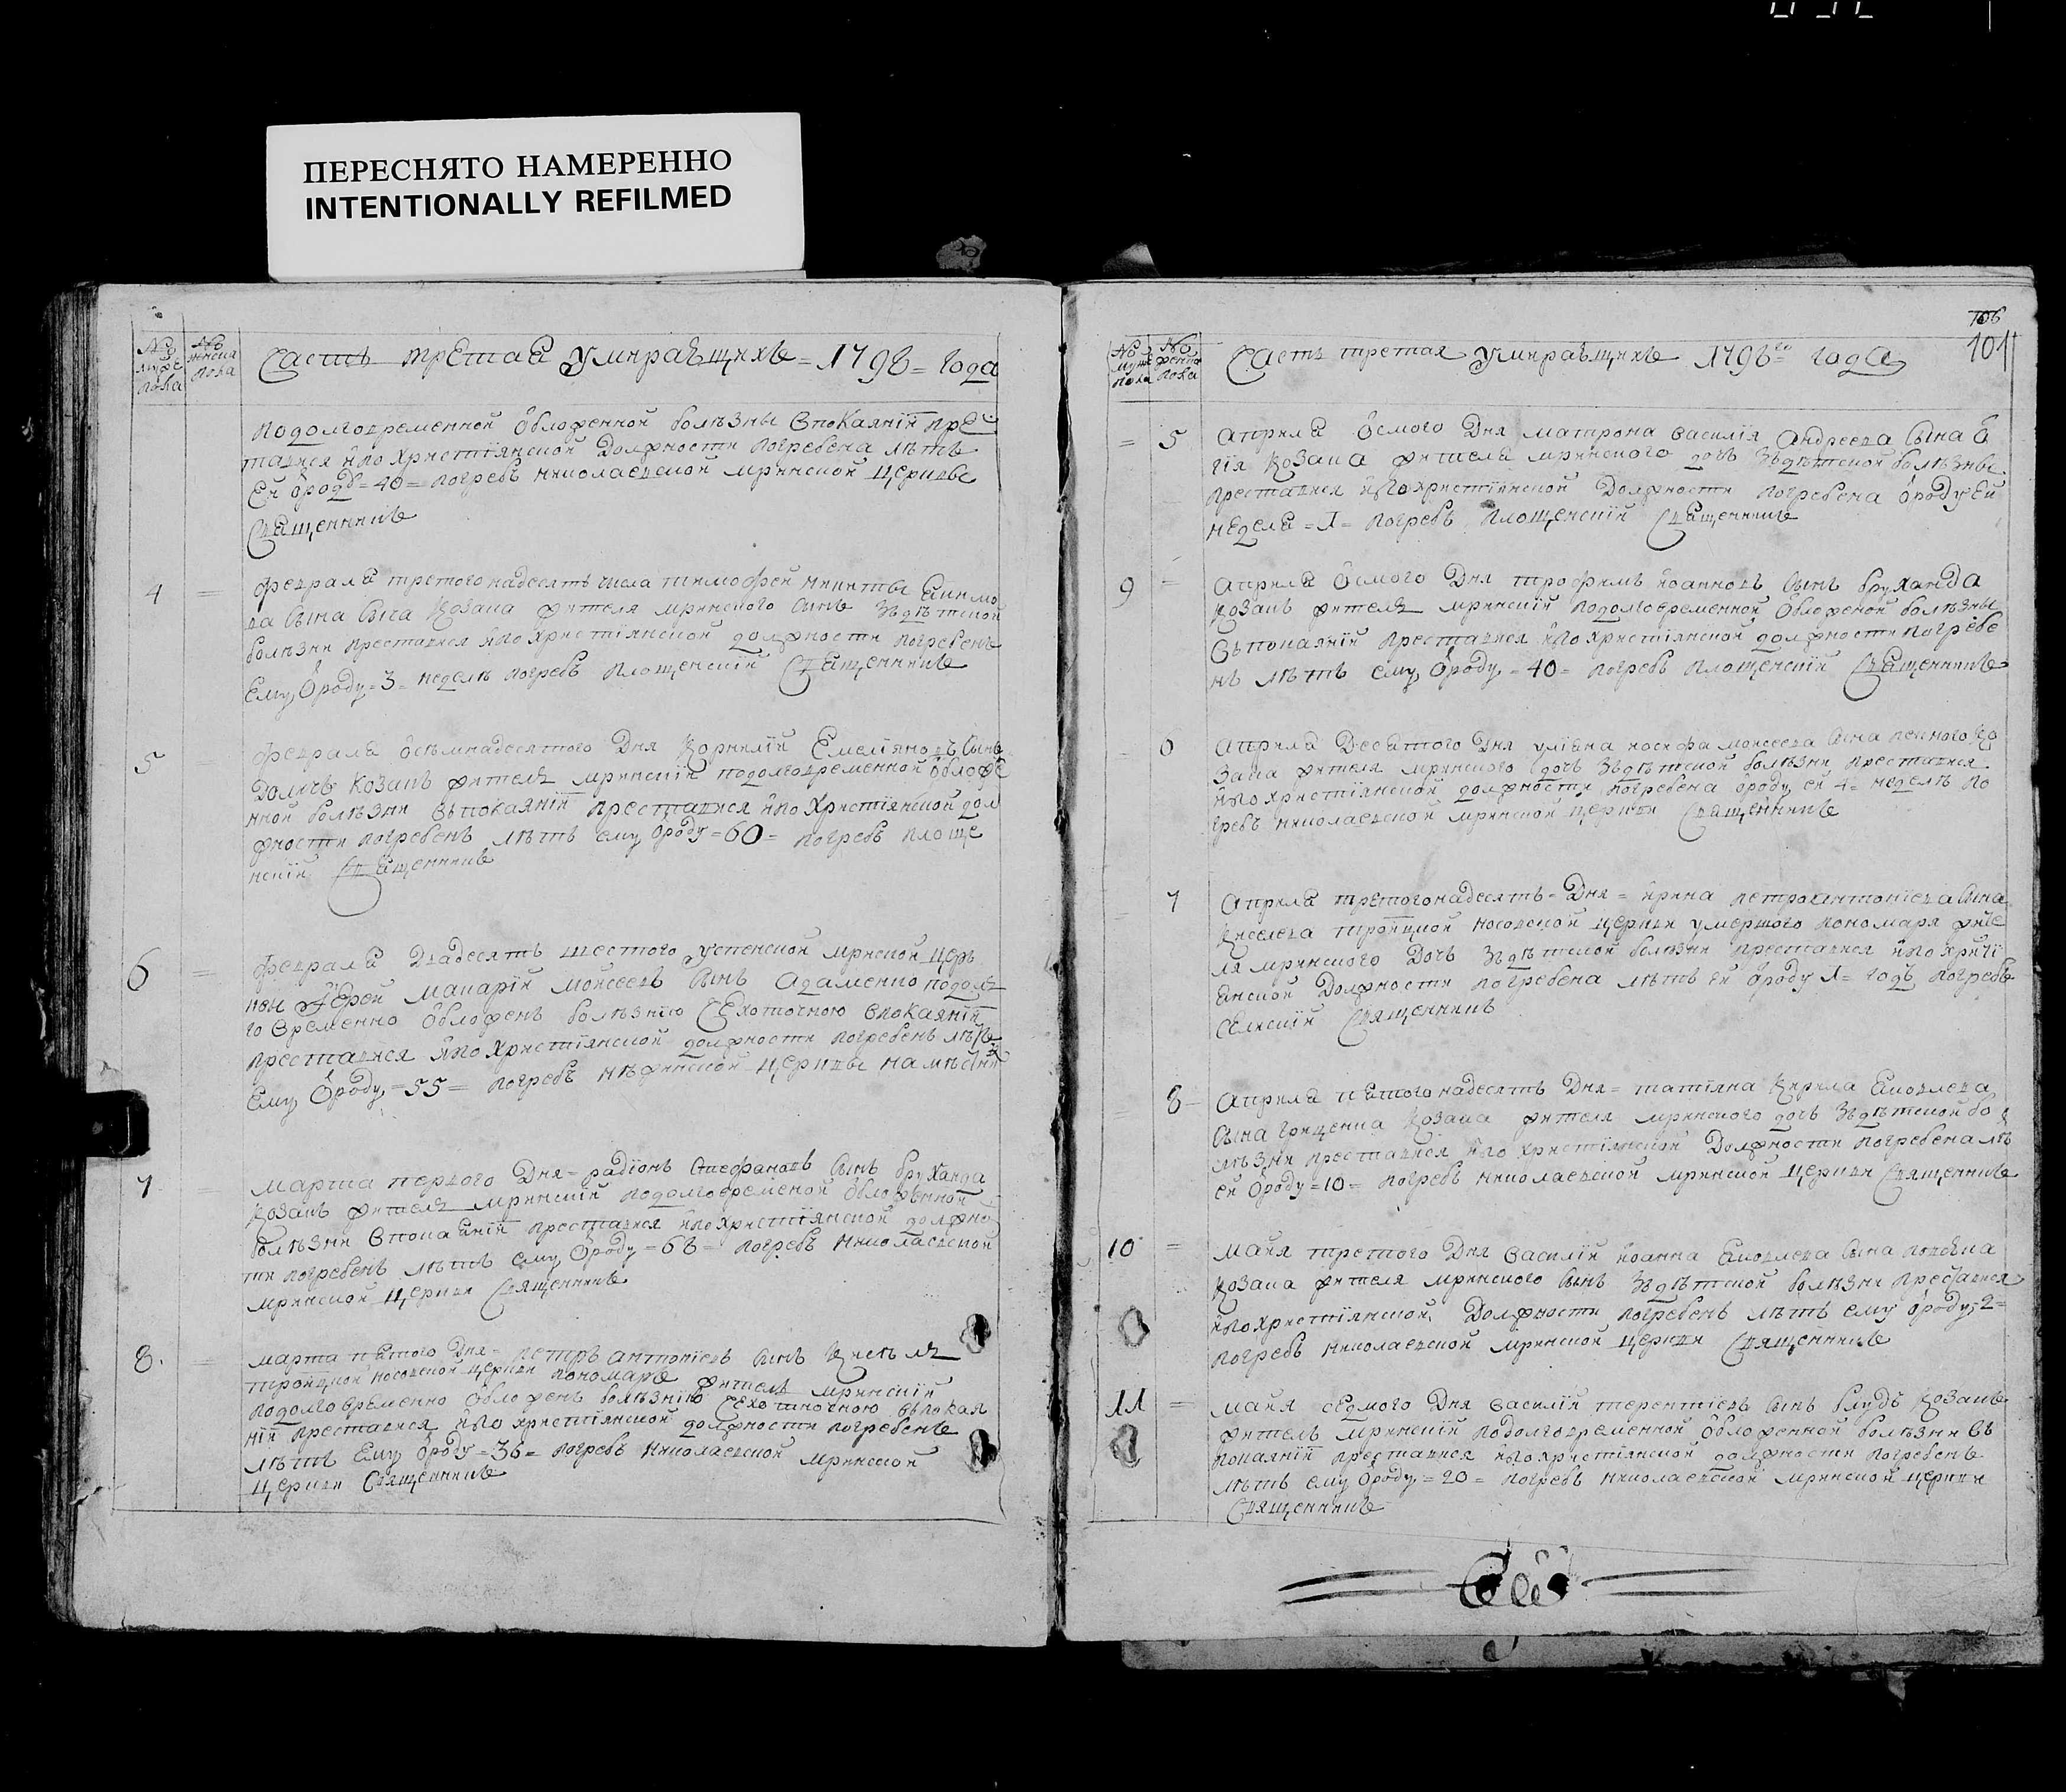 ПЕРЕСНЯТО НАМЕРЕННО
INTENTIONALLY REFILMED
№ мужс пола
№ женск пола
Часть третая Умирающихъ = 1798 = года
подолговременной обложенной болѣзны впокаяніи пре
ставися ипо христіянской должности погребена лѣтъ
ей ѿроду = 40 = погребъ николаевской мринской церквы
священникъ
4 = февраля третогонадесять числа тимофей никиты
сына козака жителя мринского сынъ зъдѣтской
болѣзни преставися ипо христіянской должности погребенъ
ему ѿроду = 3 = недѣлѣ погребъ площенскій священникъ
5 февраля осѣмнадесятого дня корнилій емеліяновъ сынъ
козакъ жителъ мринскій подолговременной обложе
нной болѣзни въпокаяніи преставися ипо христіянской дол
жности погребенъ лѣтъ ему ѿроду = 60 = погребъ площе
нскій священникъ
6 = февраля двадесять шестого успенской мринской церк
вы іерей макарій моисеевъ сынъ адаменко подол
говременно обложенъ болѣзнію сехоточною впокаяніи
преставися ипо христіянской должности погребенъ лѣтъ
ему ѿроду = 55 = погребъ нѣжинской церквы намѣсник
7 марта первого дня = радіонъ стефановъ сынъ бруханда
козакъ жителъ мринскій подолговременой обложенной
болѣзни впокаяніи преставися ипо христіянской должнос
ти погребенъ лѣтъ ему ѿроду = 68 = погребъ николаевской
мринской церкви священникъ
8 = марта пятого дня = петръ антоніевъ сынъ киселъ
тройцкой носовской церкви пономаръ жителъ мринскій
подолговременно обложенъ болѣзнію сехоточною въпокая
ніи преставися ипо христіянской должности погребенъ
лѣтъ ему ѿроду = 36 = погребъ николаевской мринской
церкви священникъ
106
101
№ мужс пола
№ женска пола
Часть третая Умирающихъ 1798го года
= 5 априля осмого дня матрона василія андреева сына
козака жителя мринского дочь зъдѣтской болѣзны
преставися ипо христіянской должности погребена ѿроду ей
неделя = 1 = погребъ площенскій священникъ
9 = априля осмого дня трофимъ иоанновъ сынъ бруханда
козакъ жителъ мринскій подолговременной обложеной болѣзны
въпокаяніи преставися ипо христіянской должности погребе
нъ лѣтъ ему ѿроду = 40 = погребъ площенскій священникъ
6 априля десятого дня уліяна иосифа моисеева сына ко
зака жителя мринского дочь зъдѣтской болѣзни преставися
ипо христіянской должности погребена ѿроду ей 4 = недѣлѣ по
гребъ николаевской мринской церкви священникъ
7 априля третогонадесять = дня = ирина петра антоніева сына
киселева тройцкой носовской церкви умершого пономаря жите
ля мринского дочь зъдѣтской болѣзни преставися ипо христі
янской должности погребена лѣтъ ей ѿроду 1 = годъ погребъ
священникъ
8 = априля пятогонадесять дня = татіяна кирила яковлева
сына грищенка козака жителя мринского дочь зъдѣтской бо
лѣзни преставися ипо христіянской должности погребена лѣ
ей ѿроду = 10 = погребъ николаевской мринской церкви священникъ
10 = майя третого дня василій иоанна яковлева сына
козака жителя мринского сынъ зъдѣтской болѣзни преставися
ипо христіянской должности погребенъ лѣтъ ему ѿроду = 2 =
погребъ николаевской мринской церкви священникъ
11 = майя седмого дня василій терентіевъ сынъ блудъ козакъ
жителъ мринскій подолговременной обложенной болѣзни въ
покаяніи преставися ипо христіянской должности погребенъ
лѣтъ ему ѿроду = 20 = погребъ николаевской мринской церкви
священникъ